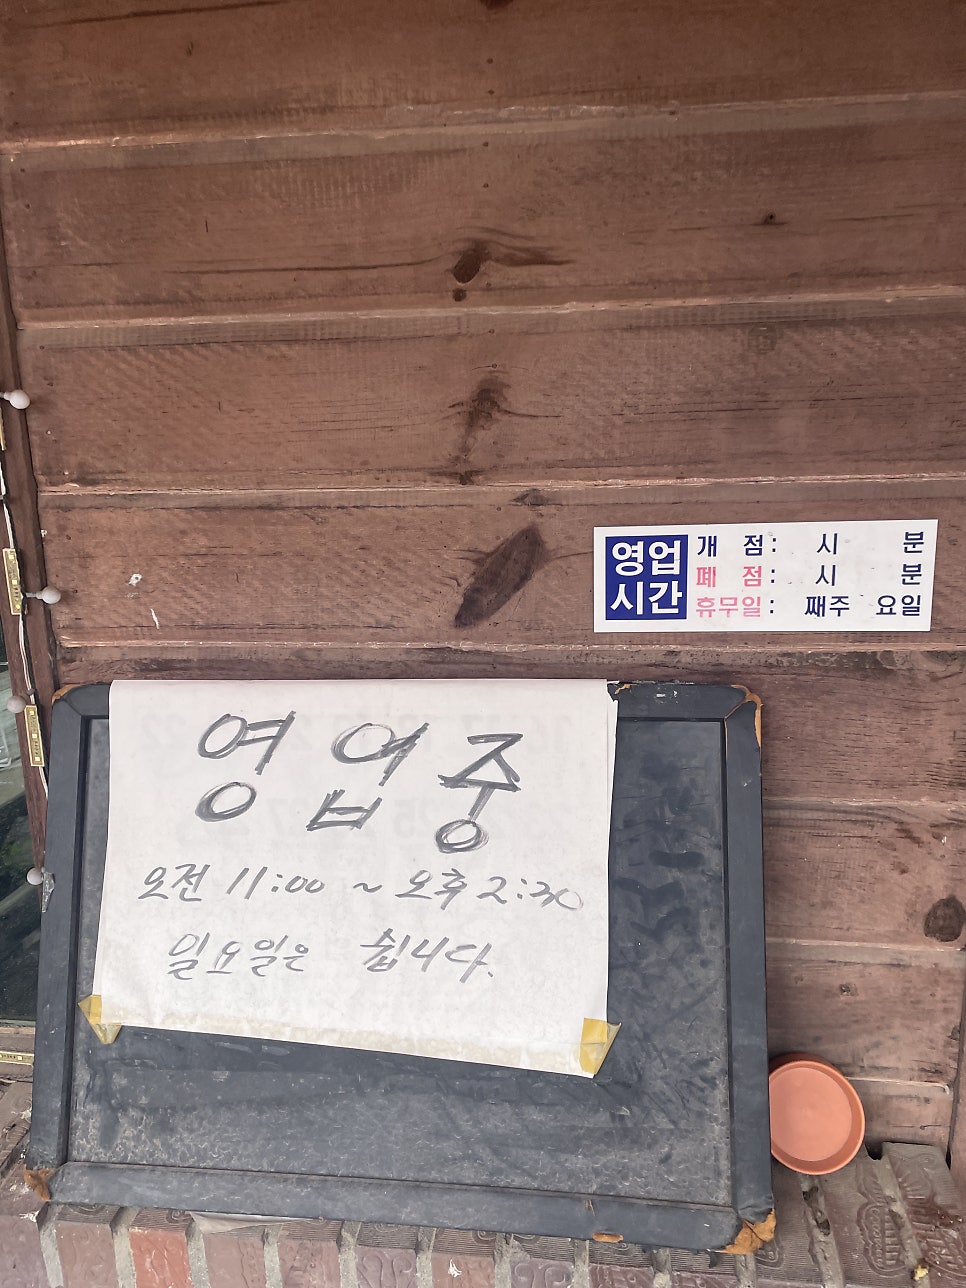 영업
시간
개 점: 시 분
폐 점: 시 분
휴무일: 째주 요일
영 업 중
오전 11:00 ~ 오후 2:30
일요일은 쉽니다.